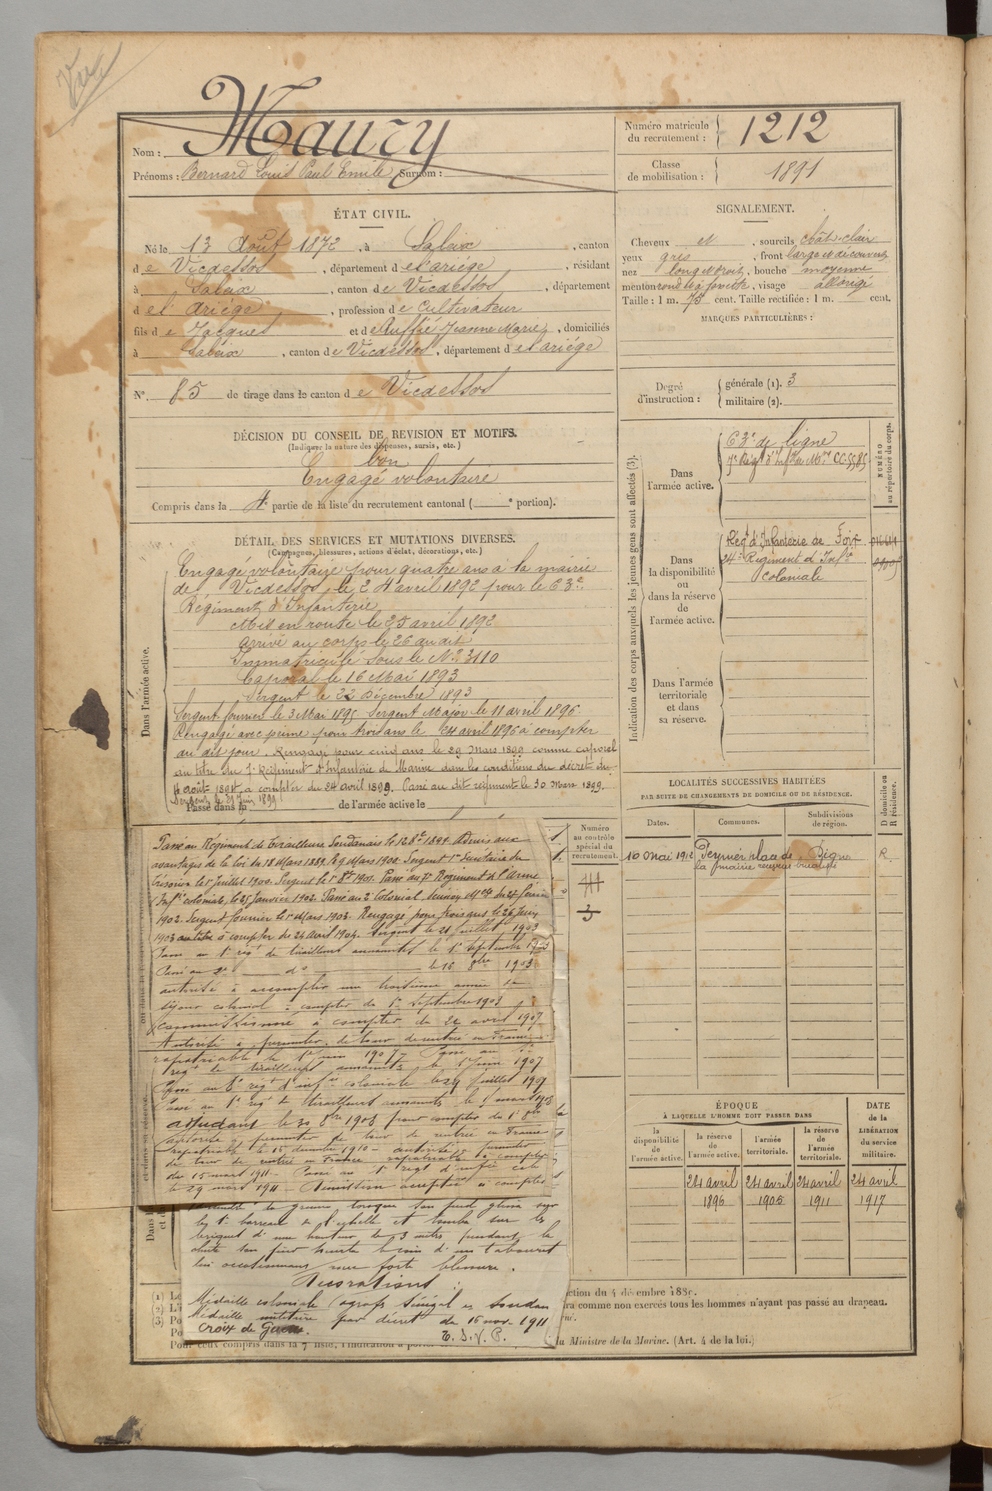 Vu
Nom : Maury
Prénoms : Bernard Louis Paul Emile Surnom :
Numéro matricule du recrutement : 1212
Classe de mobilisation : 1891
ÉTAT CIVIL.
Né le 13 Août 1872, à Saleix, canton
de Vicdessos, département de l'ariége, résidant
à Saleix, canton de Vicdessos, département
de l'Ariége, profession de Cultivateur
fils de Jacques et de Ruffié Jeanne Marie, domiciliés
à Saleix, canton de Vicdessos, département de l'ariége
N° 85 de tirage dans le canton de Vicdessos
SIGNALEMENT.
Cheveux et, sourcils chât. clair
yeux gris, front large et découvert
nez long et droit, bouche moyenne
menton rond et à fossette, visage allongé
Taille : 1 m. 75 cent. Taille rectifiée : 1 m. cent.
MARQUES PARTICULIÈRES :
Degré d'instruction : générale (1). 3
militaire (2).
DÉCISION DU CONSEIL DE REVISION ET MOTIFS.
(Indiquer la nature des dispenses, sursis, etc.)
bon
Engagé volontaire
Compris dans la 4e partie de la liste du recrutement cantonal ( e portion).
DÉTAIL DES SERVICES ET MUTATIONS DIVERSES.
(Campagnes, blessures, actions d'éclat, décorations, etc.)
Dans l'armée active.
Engagé volontaire pour quatre ans à la mairie
de Vicdessos, le 24 avril 1892 pour le 63e
Régiment d'Infanterie
Mis en route le 25 avril 1892
Arrivé au corps le 26 au dit
Immatriculé sous le N° 3110
Caporal le 16 Mai 1893
Sergent le 22 Décembre 1893
Sergent fourrier le 3 Mai 1895 Sergent Major le 11 avril 1896
Rengagé avec prime pour trois ans le 24 avril 1896 à compter
du dit jour. Rengagé pour cinq ans le 29 Mars 1899 comme caporal
au titre du 7e Régiment d'Infanterie de Marine dans les conditions du décret du
4 août 1894, à compter du 24 avril 1899. Passé au dit régiment le 30 Mars 1899.
Sergent le 21 Juin 1899
Passé dans la de l'armée active le
Passé au Régiment de Tirailleurs Soudanais le 12 8bre 1899. Admis aux
avantages de la loi du 18 Mars 1889, le 9 Mars 1900. Sergent 1er Secrétaire de
Trésorier le 1er Juillet 1900. Sergent le 1er 8bre 1901. Passé au 7e Régiment de l'Arme
Infie coloniale, le 25 Janvier 1902. Passé au 2e Colonial, décision Mlle du 27 février
1902. Sergent fourrier le 1er Mars 1903. Rengagé pour trois ans le 26 Juin
1903 à compter du 24 Avril 1904. Sergent le 21 Juillet 1903
Passé au 1er régt de tirailleurs annamites le 1er Septembre 1903
Passé au 2e d° le 16 8bre 1903
autorisé à accomplir une troisième année de
séjour colonial à compter du 1er Septembre 1903
Commissionné à compter du 24 avril 1907
Autorisé à permuter de tour de rentrée en France
rapatriable le 1er juin 1907 Passé au
régt de tirailleurs annamites le 1er Juin 1907
Passé au 8e régt d'infie coloniale le 29 Juillet 1907
Passé au 1er régt de tirailleurs annamites le 1er mars 1908
adjudant le 30 8bre 1908 pour compter du 1er 8bre
autorisé à permuter de tour de rentrée en France
rapatriable le 15 décembre 1910 - autorisé à permuter
de tour de rentrée en France rapatriable à compter
du 15 mars 1911 - Passé au 1er régt d'infie cole
le 29 mars 1911 - Démission acceptée à compter
de lorsque son pied glissa sur
les 1ers barreaux de l'échelle et tomba sur les
briques d'une hauteur de 3 mètres pendant la
chute son pied heurta le coin d'un tabouret
lui occasionnant une forte blessure.
Décorations :
Médaille coloniale (agrafe Sénégal et Soudan
Médaille militaire par décret du 16 nov. 1911
Croix de Guerre. T. S. V. P.
Numéro au contrôle spécial du recrutement.
Indication des corps auxquels les jeunes gens sont affectés (3).
NUMÉRO au répertoire du corps.
Dans l'armée active.
63e de ligne
7e Régt d'Infie de Mne CC.5585
Dans la disponibilité ou dans la réserve de l'armée active.
Régt d'Infanterie de Foix
24e Régiment d'Infie
Coloniale
Dans l'armée territoriale et dans sa réserve.
LOCALITÉS SUCCESSIVES HABITÉES
PAR SUITE DE CHANGEMENTS DE DOMICILE OU DE RÉSIDENCE.
Dates. Communes. Subdivisions de région. D domicile ou R résidence.
10 Mai 1912 Peyruis, place de la mairie Digne R.
ÉPOQUE
À LAQUELLE L'HOMME DOIT PASSER DANS
la disponibilité de l'armée active. la réserve de l'armée active. l'armée territoriale. la réserve de l'armée territoriale.
DATE de la LIBÉRATION du service militaire.
24 avril 1896 24 avril 1905 24 avril 1911 24 avril 1917
ction du 4 décembre 1889.
ra comme non exercés tous les hommes n'ayant pas passé au drapeau.
Ministre de la Marine. (Art. 4 de la loi.)